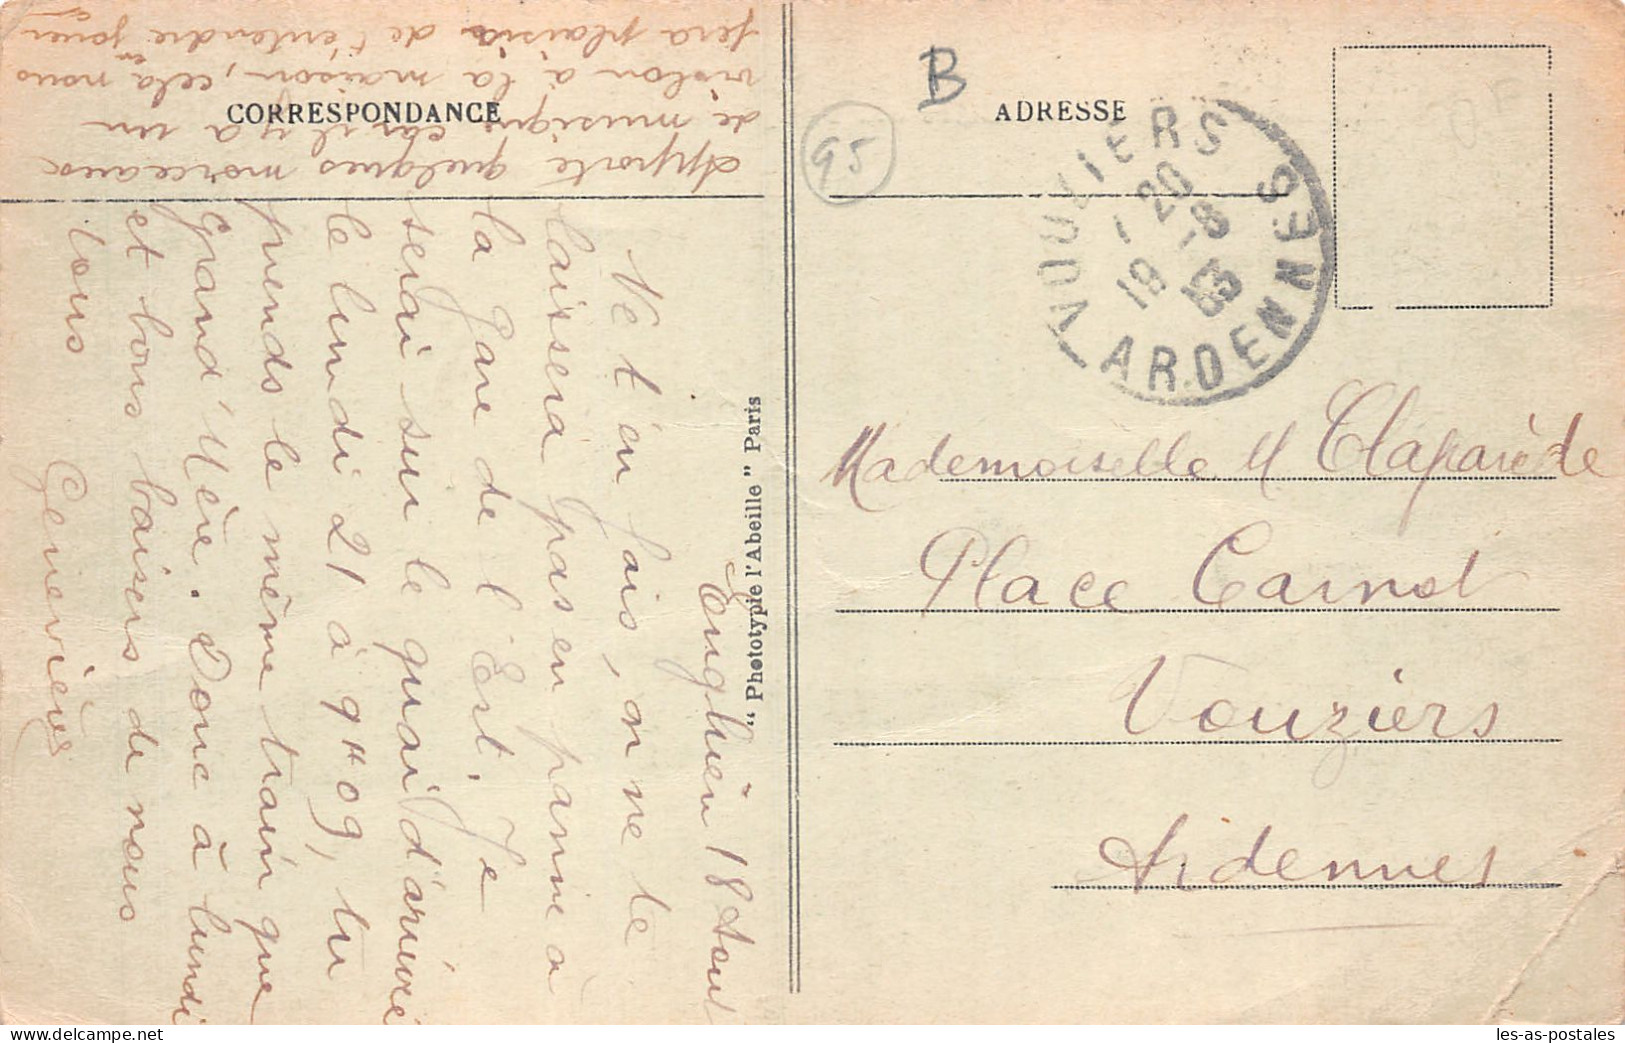 CORRESPONDANCE
ADRESSE
B
95
VOUZIERS
20
18 - 8
13
ARDENNES
Enghien 18 Aout
Ne t'en fais, on ne te
laissera pas en panne à
la Gare de l'Est. Je
serai sur le quai d'arrivée
le lundi 21 à 9H09, tu
prends le même train que
Grand'Mère. Donc à lundi
et bons baisers de nous
tous
Geneviève
Apporte quelques morceaux
de musique car il y a un
violon à la maison, cela nous
fera plaisir de t'entendre en jouer
"Phototypie l'Abeille" Paris
Mademoiselle M Claparède
Place Carnot
Vouziers
Ardennes
les-as-postales.com